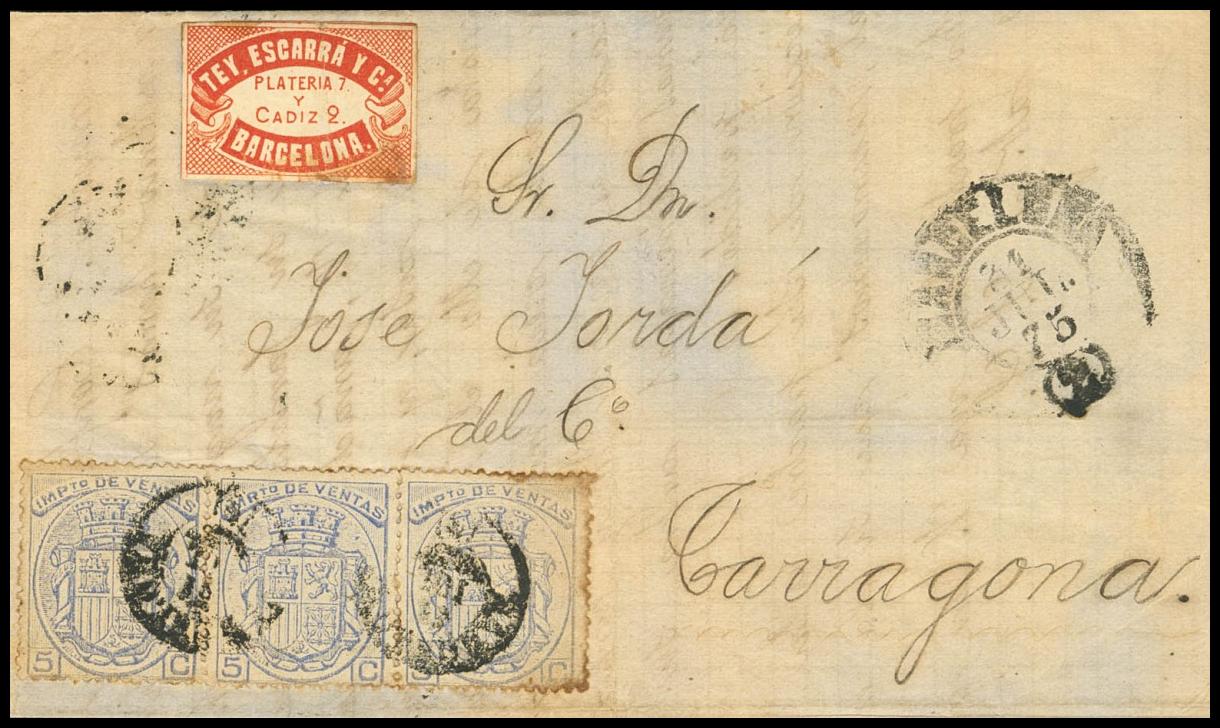 TEY, ESCARRÁ Y Cª.
PLATERIA 7.
Y
CADIZ 2.
BARCELONA.
Sr. Dn.
José Jordá
del Cº.
Tarragona.
21
IMPTO DE VENTAS
5 C
IMPTO DE VENTAS
5 C
IMPTO DE VENTAS
5 C